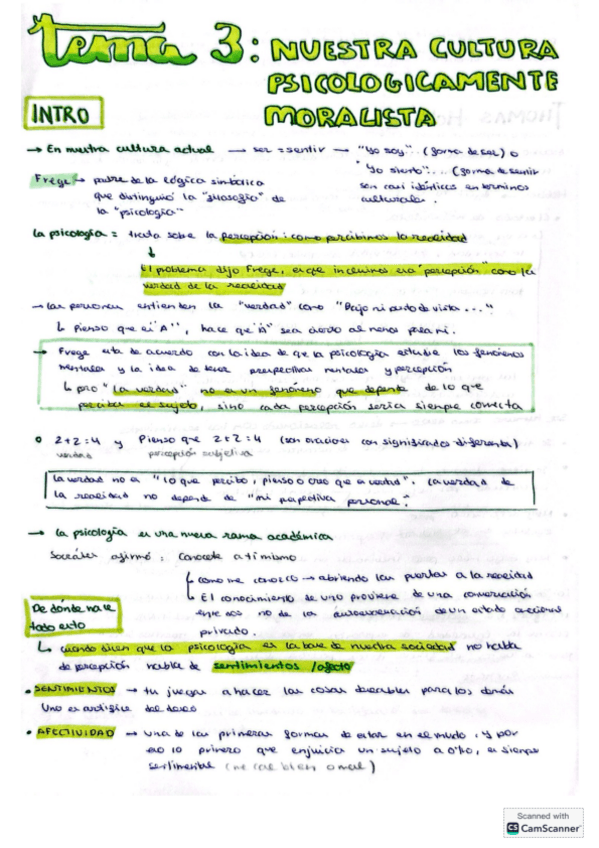 tema 3: NUESTRA CULTURA
PSICOLOGICAMENTE
INTRO MORALISTA
→ En nuestra cultura actual → ser = sentir → "Yo soy"... (forma de ser) o
"Yo siento"... (forma de sentir
Frege → padre de la lógica simbólica son casi idénticas en términos
que distinguió la "filosofía" de culturales.
la "psicología"
La psicología = trata sobre la percepción: como percibimos la realidad
↓
El problema dijo Frege, es que incluimos esa "percepción" como la
verdad de la realidad
→ Las personas entienden la "verdad" como "Bajo mi punto de vista..."
↳ Pienso que es "A", hace que "A" sea cierto al menos para mi.
→ Frege esta de acuerdo con la idea de que la psicología estudie los fenómenos
mentales y la idea de tener perspectivas mentales y percepción
↳ pro "La verdad" no es un fenómeno que dependa de lo que
perciba el sujeto, sino cada percepción sería siempre correcta
2+2=4 y Pienso que 2+2=4 (son oraciones con significados diferentes)
verdad percepción subjetiva
La verdad no es "lo que percibo, pienso o creo que es verdad". La verdad de
la realidad no depende de "mi perspectiva personal".
→ La psicología es una nueva rama académica
Socrátes afirmó: Conocete a ti mismo
↳ como me conozco → abriendo las puertas a la realidad
↳ El conocimiento de uno proviene de una conversación
De dónde nace entre sos no de la de un estado emocional
todo esto privado.
↳ cuando dicen que la psicología es la base de nuestra sociedad no habla
de percepción habla de sentimientos/afecto
• SENTIMIENTOS → tu juegas a hacer las cosas deseables para los demás
Uno es artífice del deseo
• AFECTIVIDAD → una de las primeras formas de estar en el mundo, y por
eso lo primero que enjuicia un sujeto a otro, es siempre
sentimental (me cae bien o mal)
Scanned with
CS CamScanner